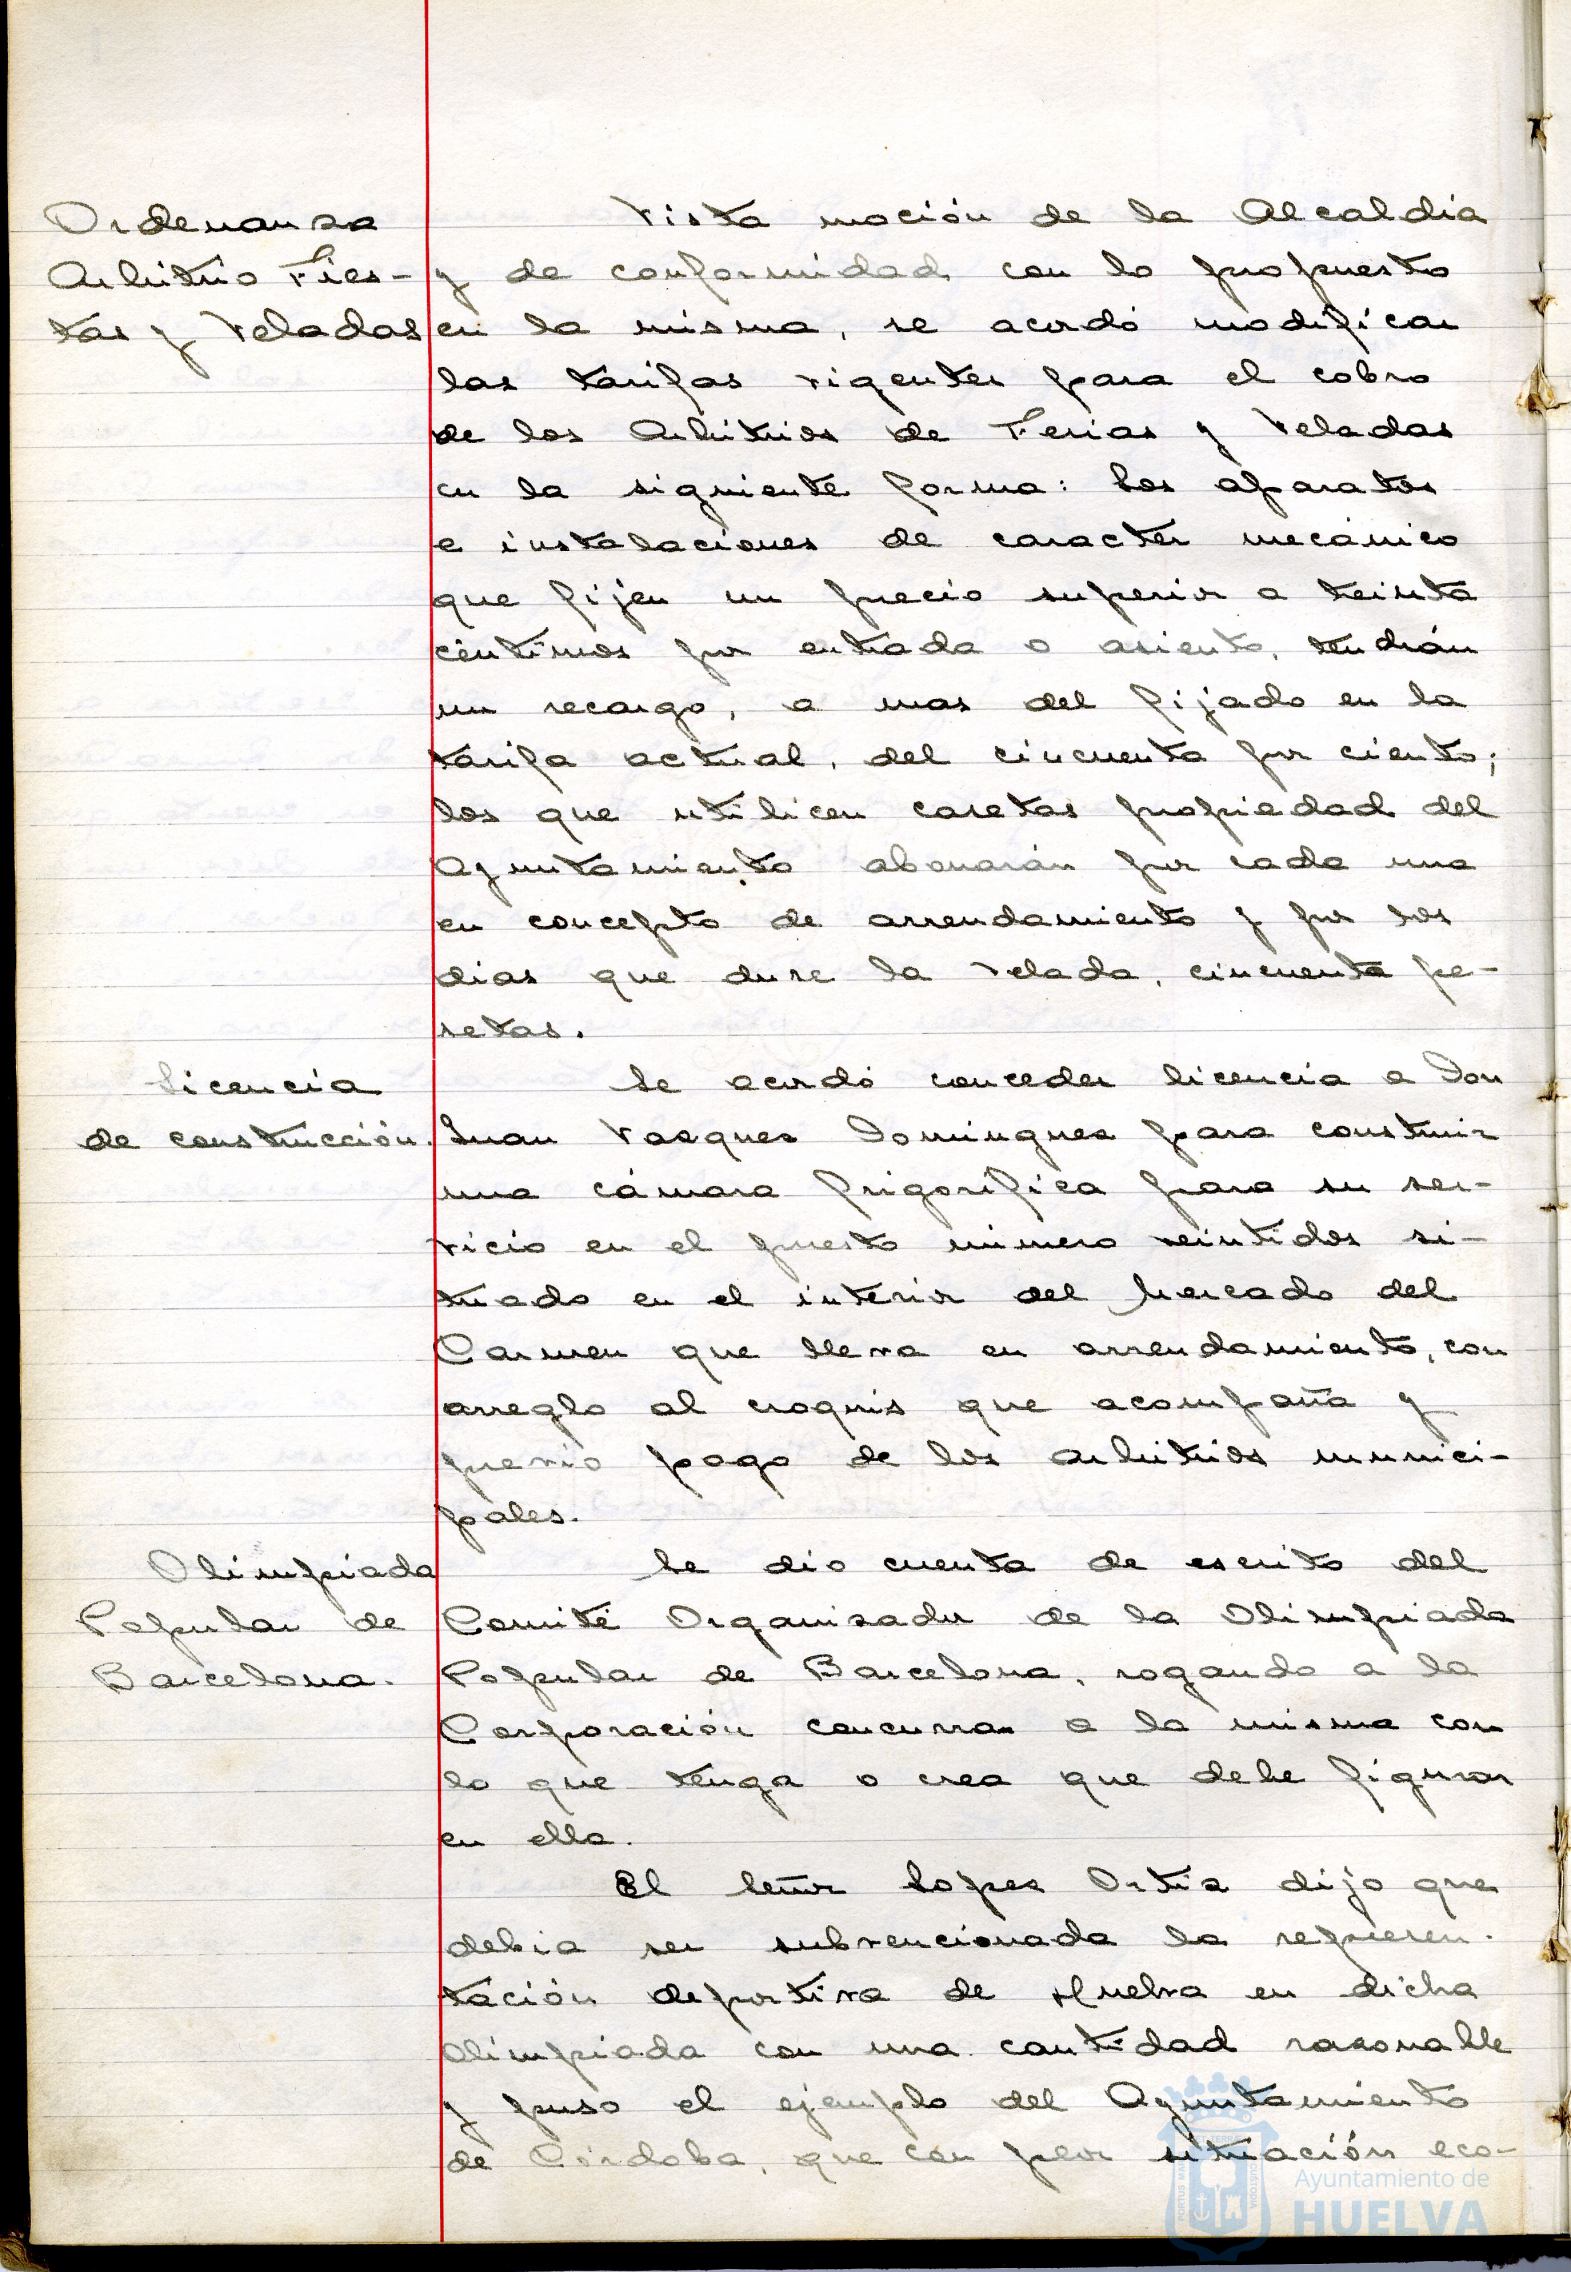 Ordenanza
Arbitrio Fies-
tas y Veladas
Vista moción de la Alcaldia
y de conformidad con lo propuesto
en la misma, se acordó modificar
las tarifas vigentes para el cobro
de los Arbitrios de Ferias y Veladas
en la siguiente forma: Los aparatos
e instalaciones de caracter mecánico
que fijen un precio superior a treinta
céntimos por entrada o asiento, tendrán
un recargo, a mas del fijado en la
tarifa actual, del cincuenta por ciento;
los que utilicen casetas propiedad del
Ayuntamiento abonarán por cada una
en concepto de arrendamiento y por los
dias que dure la Velada, cincuenta pe-
setas.
Licencia
de construcción.
Se acordó conceder licencia a Don
Juan Vazquez Dominguez para construir
una cámara frigorifica para su ser-
vicio en el puesto número veintidos si-
tuado en el interior del Mercado del
Carmen que lleva en arrendamiento, con
arreglo al croquis que acompaña y
previo pago de los arbitrios munici-
pales.
Olimpiada
Popular de
Barcelona.
Se dio cuenta de escrito del
Comité Organizador de la Olimpiada
Popular de Barcelona, rogando a la
Corporación concurra a la misma con
lo que tenga o crea que debe figurar
en ella.
El Señor Lopez Ortiz dijo que
debia ser subvencionada la represen-
tación deportiva de Huelva en dicha
Olimpiada con una cantidad razonable
y puso el ejemplo del Ayuntamiento
de Córdoba, que con peor situación eco-
Ayuntamiento de
HUELVA